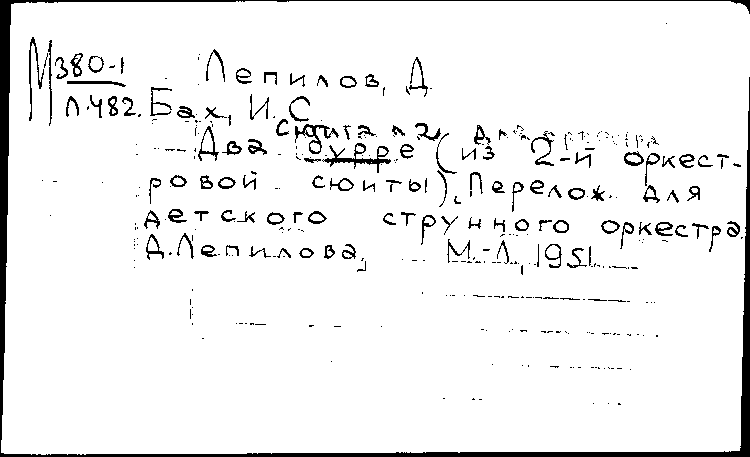 М380-1 Лепилов, Д.
Л.482. Бах, И. С.
Сюита №2, для оркестра
Два бурре (из 2-й оркест-
ровой сюиты). Перелож. для
детского струнного оркестра
Д. Лепилова, М.-Л., 1951.